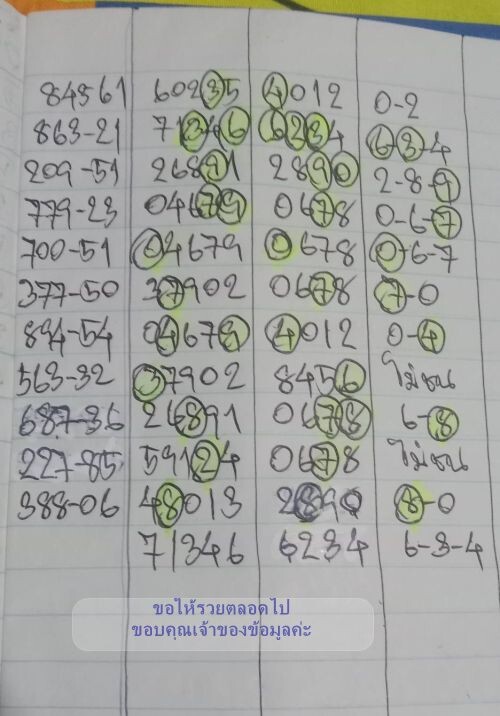 84361 60235 4012 0-2
863-21 71346 6234 6-3-4
209-51 26891 2890 2-8-9
779-23 04679 0678 0-6-7
700-51 04679 0678 0-6-7
377-50 37902 0678 7-0
894-54 04679 4012 0-4
563-32 37902 8456 ไม่ชน
687-36 26891 0678 6-8
227-85 59124 0678 ไม่ชน
388-06 48013 2890 8-0
71346 6234 6-3-4
ขอให้รวยตลอดไป
ขอบคุณเจ้าของข้อมูลค่ะ